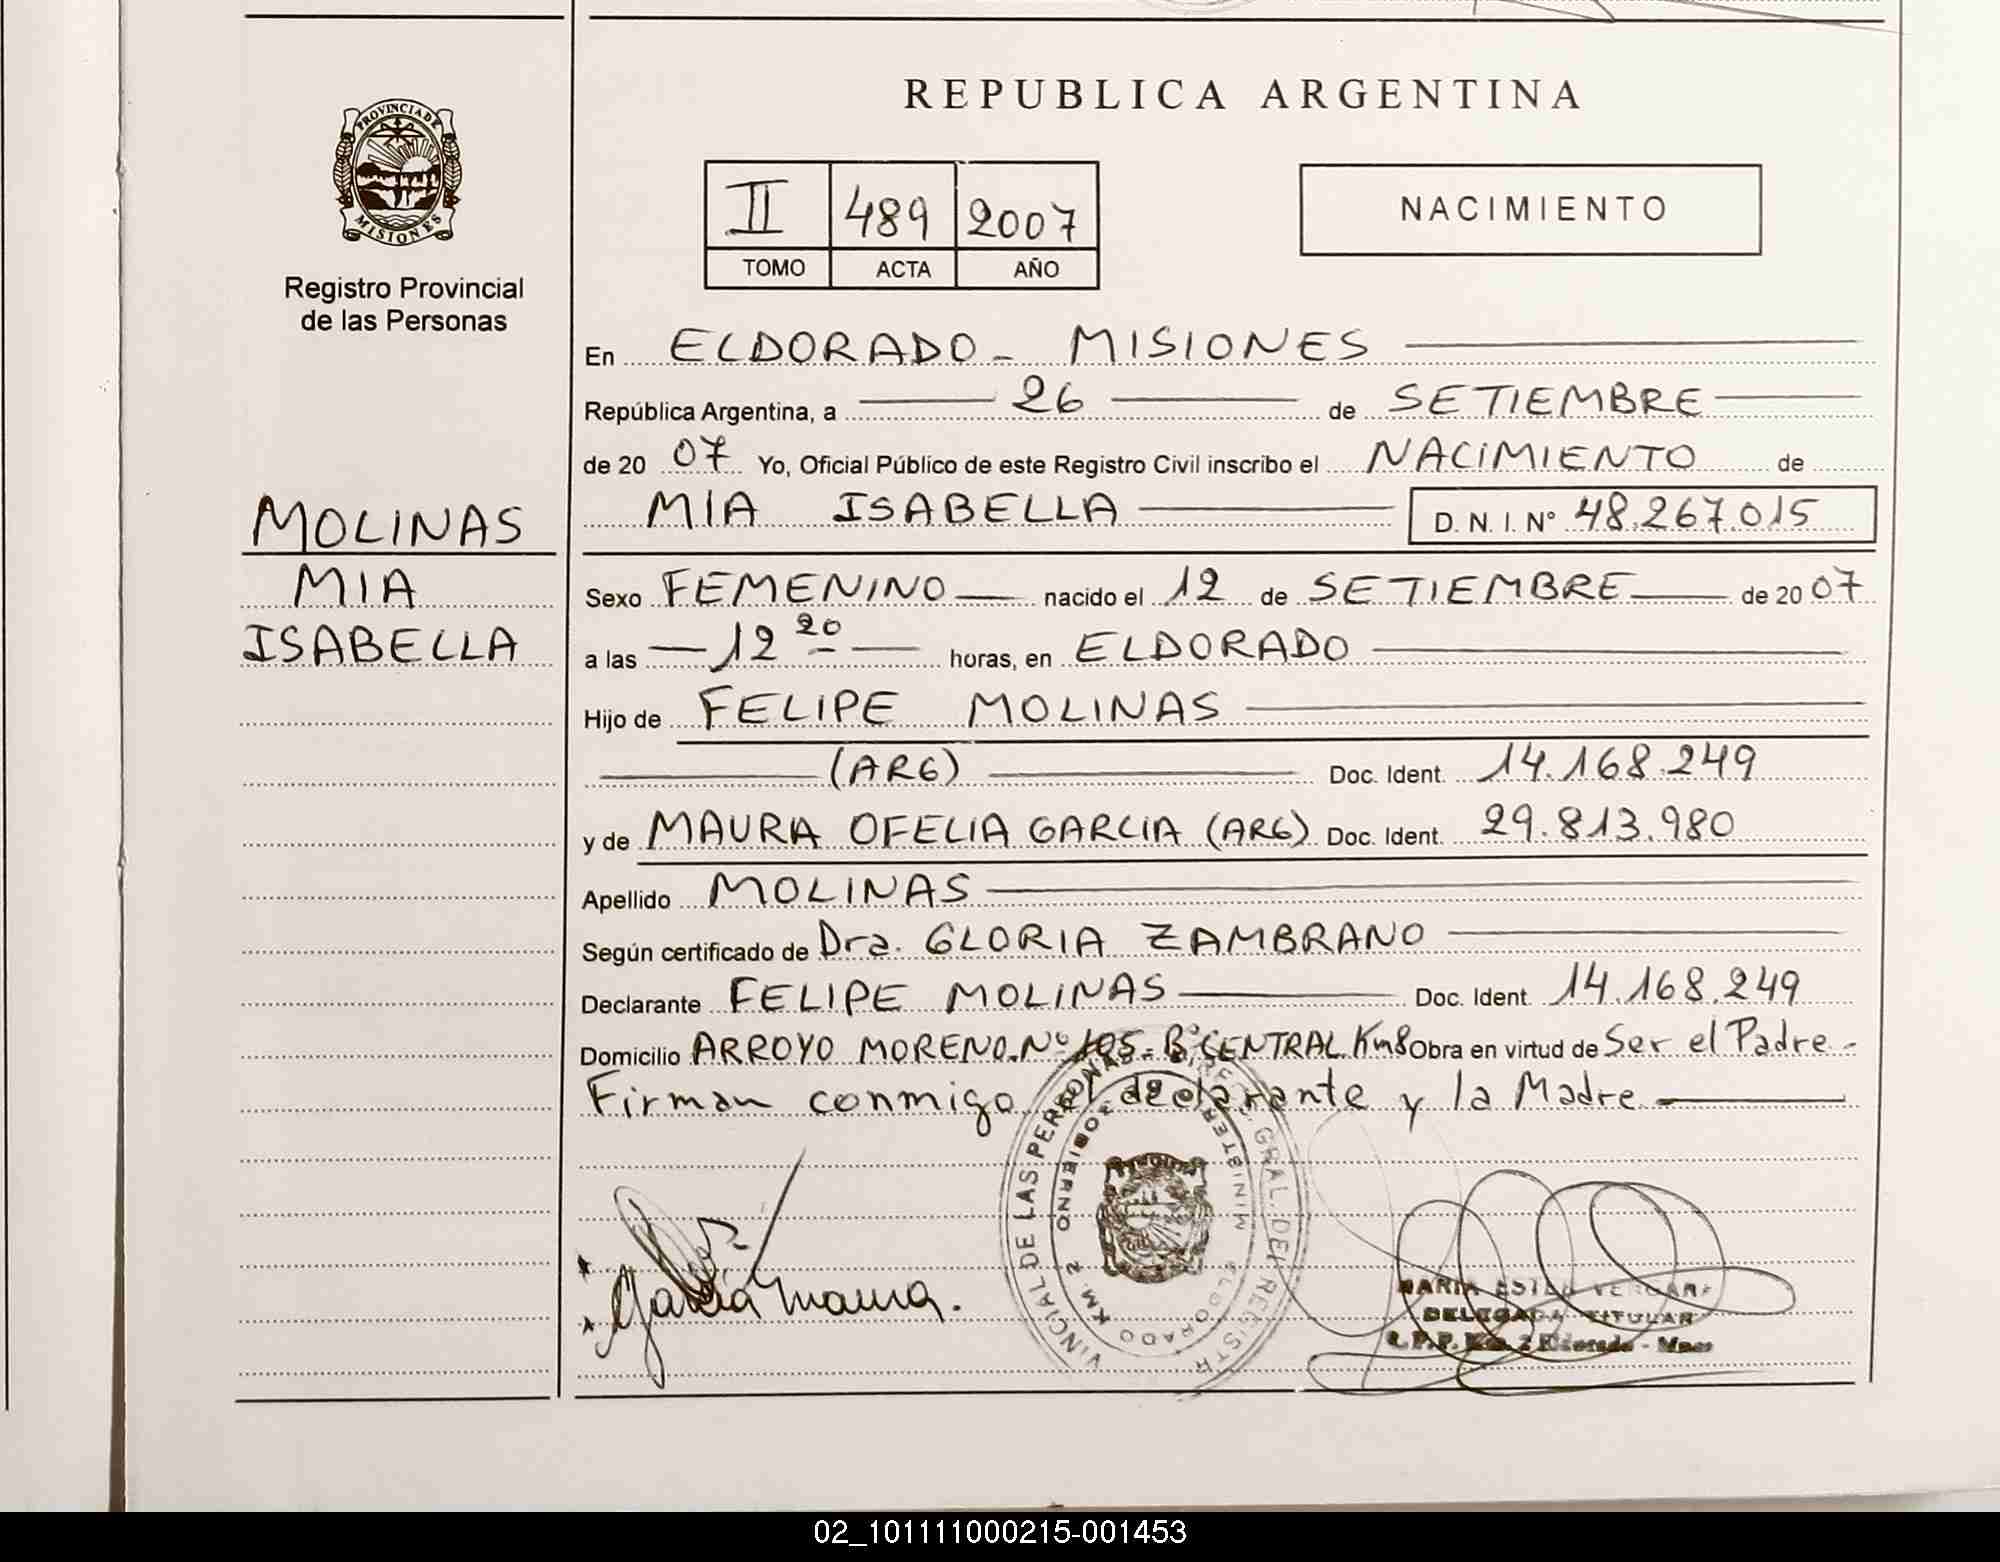 REPUBLICA ARGENTINA
PROVINCIA DE
MISIONES
Registro Provincial
de las Personas
II 489 2007
TOMO ACTA AÑO
NACIMIENTO
En ELDORADO - MISIONES
República Argentina, a 26 de SETIEMBRE
de 20 07 Yo, Oficial Público de este Registro Civil inscribo el NACIMIENTO de
MIA ISABELLA D. N. I. Nº 48.267.015
MOLINAS
MIA
ISABELLA
Sexo FEMENINO nacido el 12 de SETIEMBRE de 20 07
a las 12 20 horas, en ELDORADO
Hijo de FELIPE MOLINAS
(ARG) Doc. Ident. 14.168.249
y de MAURA OFELIA GARCIA (ARG) Doc. Ident. 29.813.980
Apellido MOLINAS
Según certificado de Dra. GLORIA ZAMBRANO
Declarante FELIPE MOLINAS Doc. Ident. 14.168.249
Domicilio ARROYO MORENO Nº 105 - Bº CENTRAL Km8 Obra en virtud de Ser el Padre -
Firman conmigo el declarante y la Madre
VINCIAL DE LAS PERSONAS
DIREC. GRAL. DEL REGISTR
MINISTER GOBIERNO
ELDORADO KM. 2
Garcia Maura.
MARIA ESTER VERGARA
DELEGADA TITULAR
R.P.P. Km. 2 Eldorado - Mnes
02_101111000215-001453